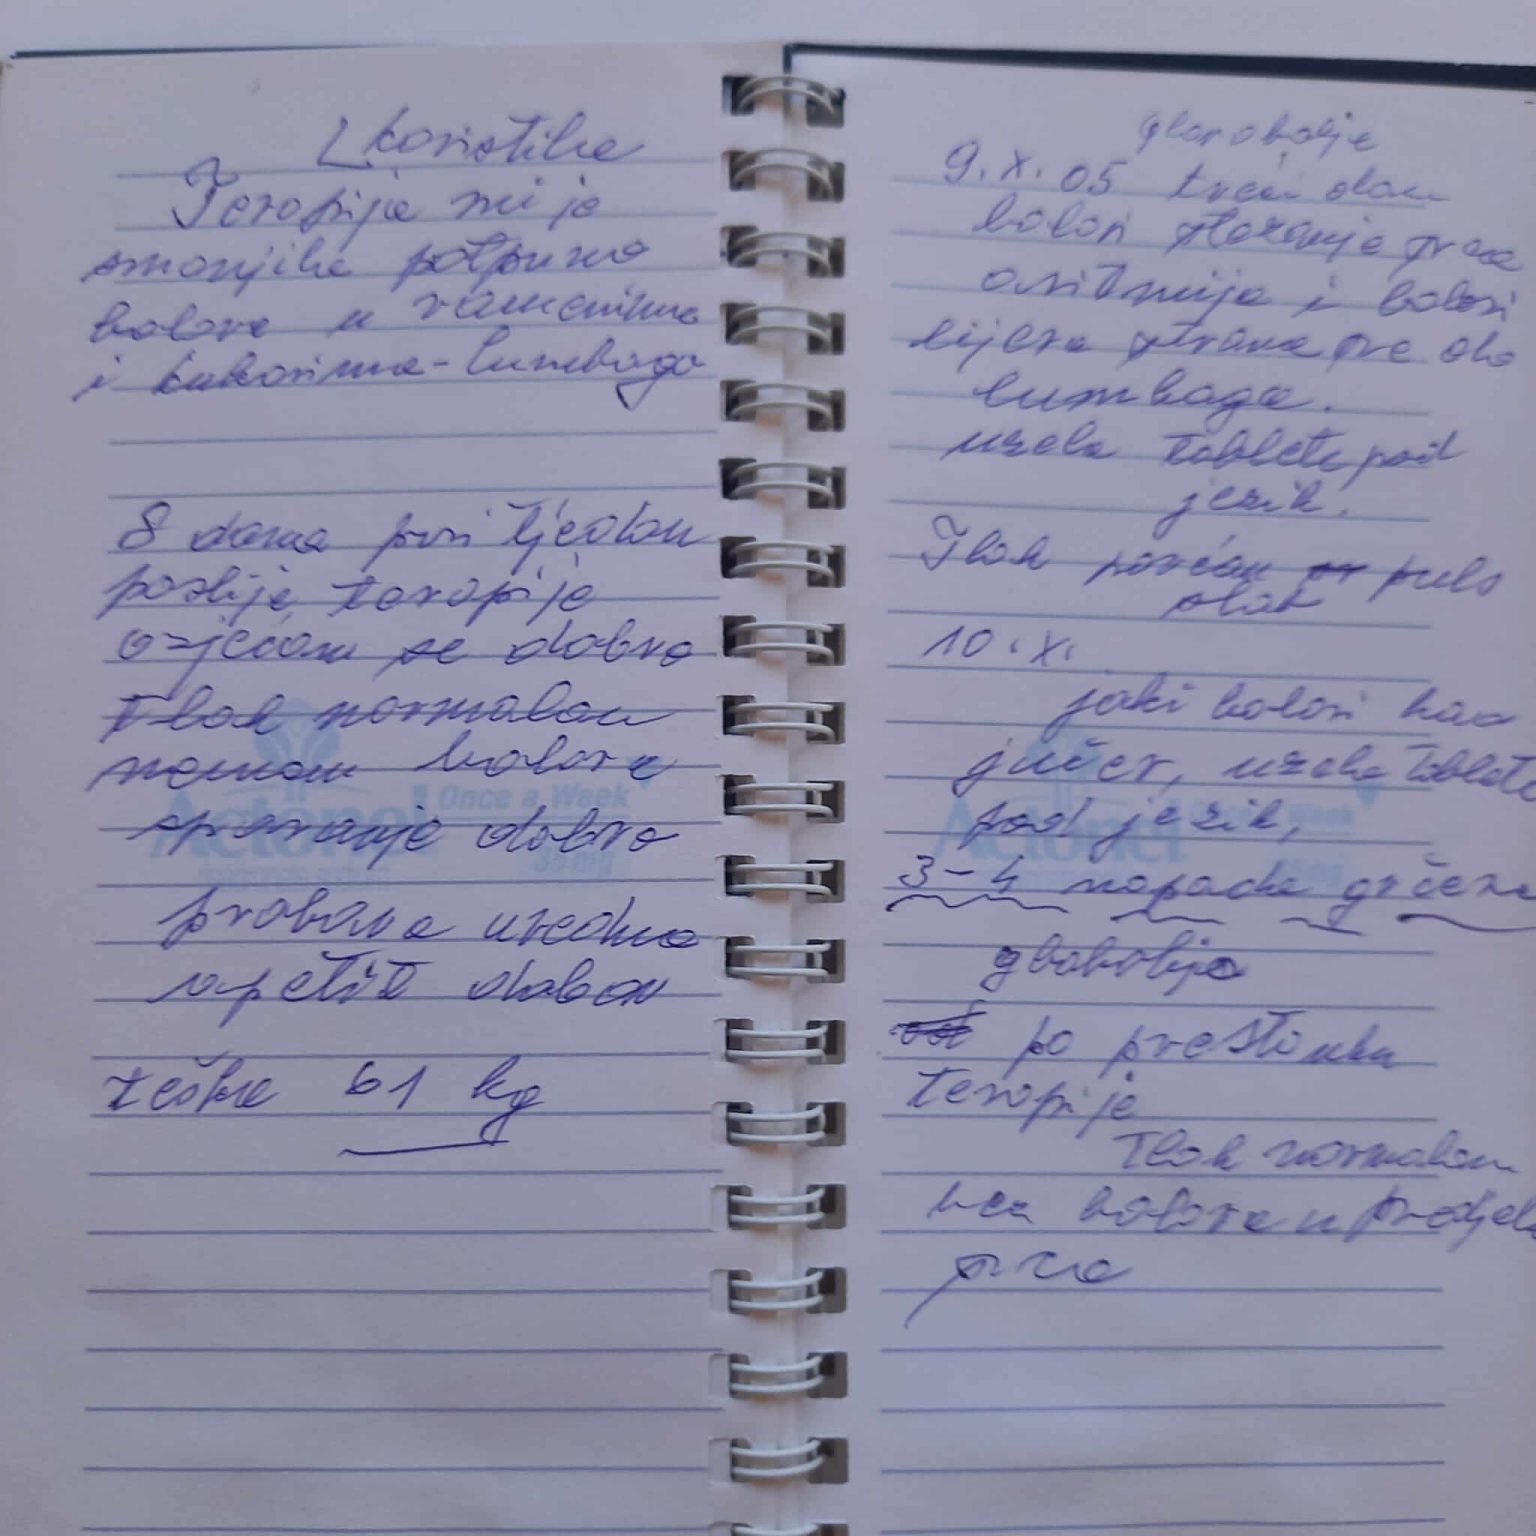 koristila
Terapija mi je
smanjila potpuno
bolove u ramenima
i kukovima - lumbago
8 dana prvi tjedan
poslije terapije
osjećam se dobro
Tlak normalan
nemam bolove
spavanje dobro
probava uredna
apetit dobar
teška 61 kg
Actonel Once a Week
35 mg
glavobolje
9. X. 05 treći dan
bolovi stezanje srca
aritmija i bolovi
lijeva strana sve do
lumbaga.
uzela tabletu pod
jezik.
Tlak povećan puls
slab
10. X.
jaki bolovi kao
jučer, uzela tablete
pod jezik,
3-4 napada grčeva
glabolja
po prestanku
terapije
Tlak normalan
bez bolova u predjelu
srca
Actonel